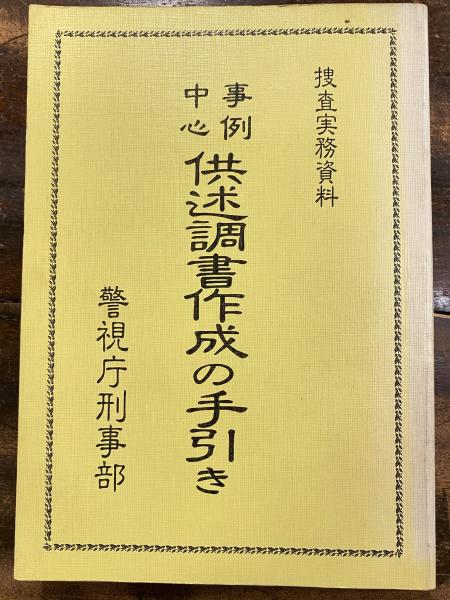 捜査実務資料
事例
中心
供述調書作成の手引き
警視庁刑事部